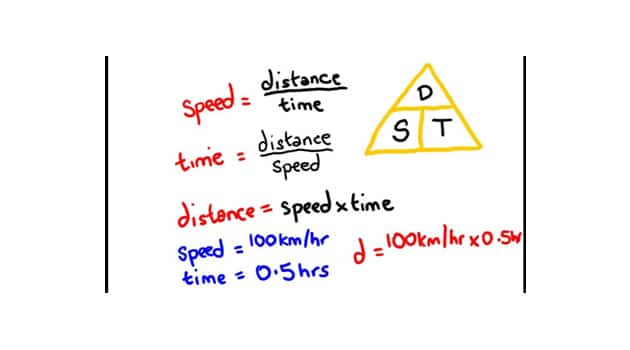 speed = distance
time
D
S T
time = distance
speed
distance = speed x time
speed = 100 km/hr
time = 0.5 hrs
d = 100 km/hr x 0.5